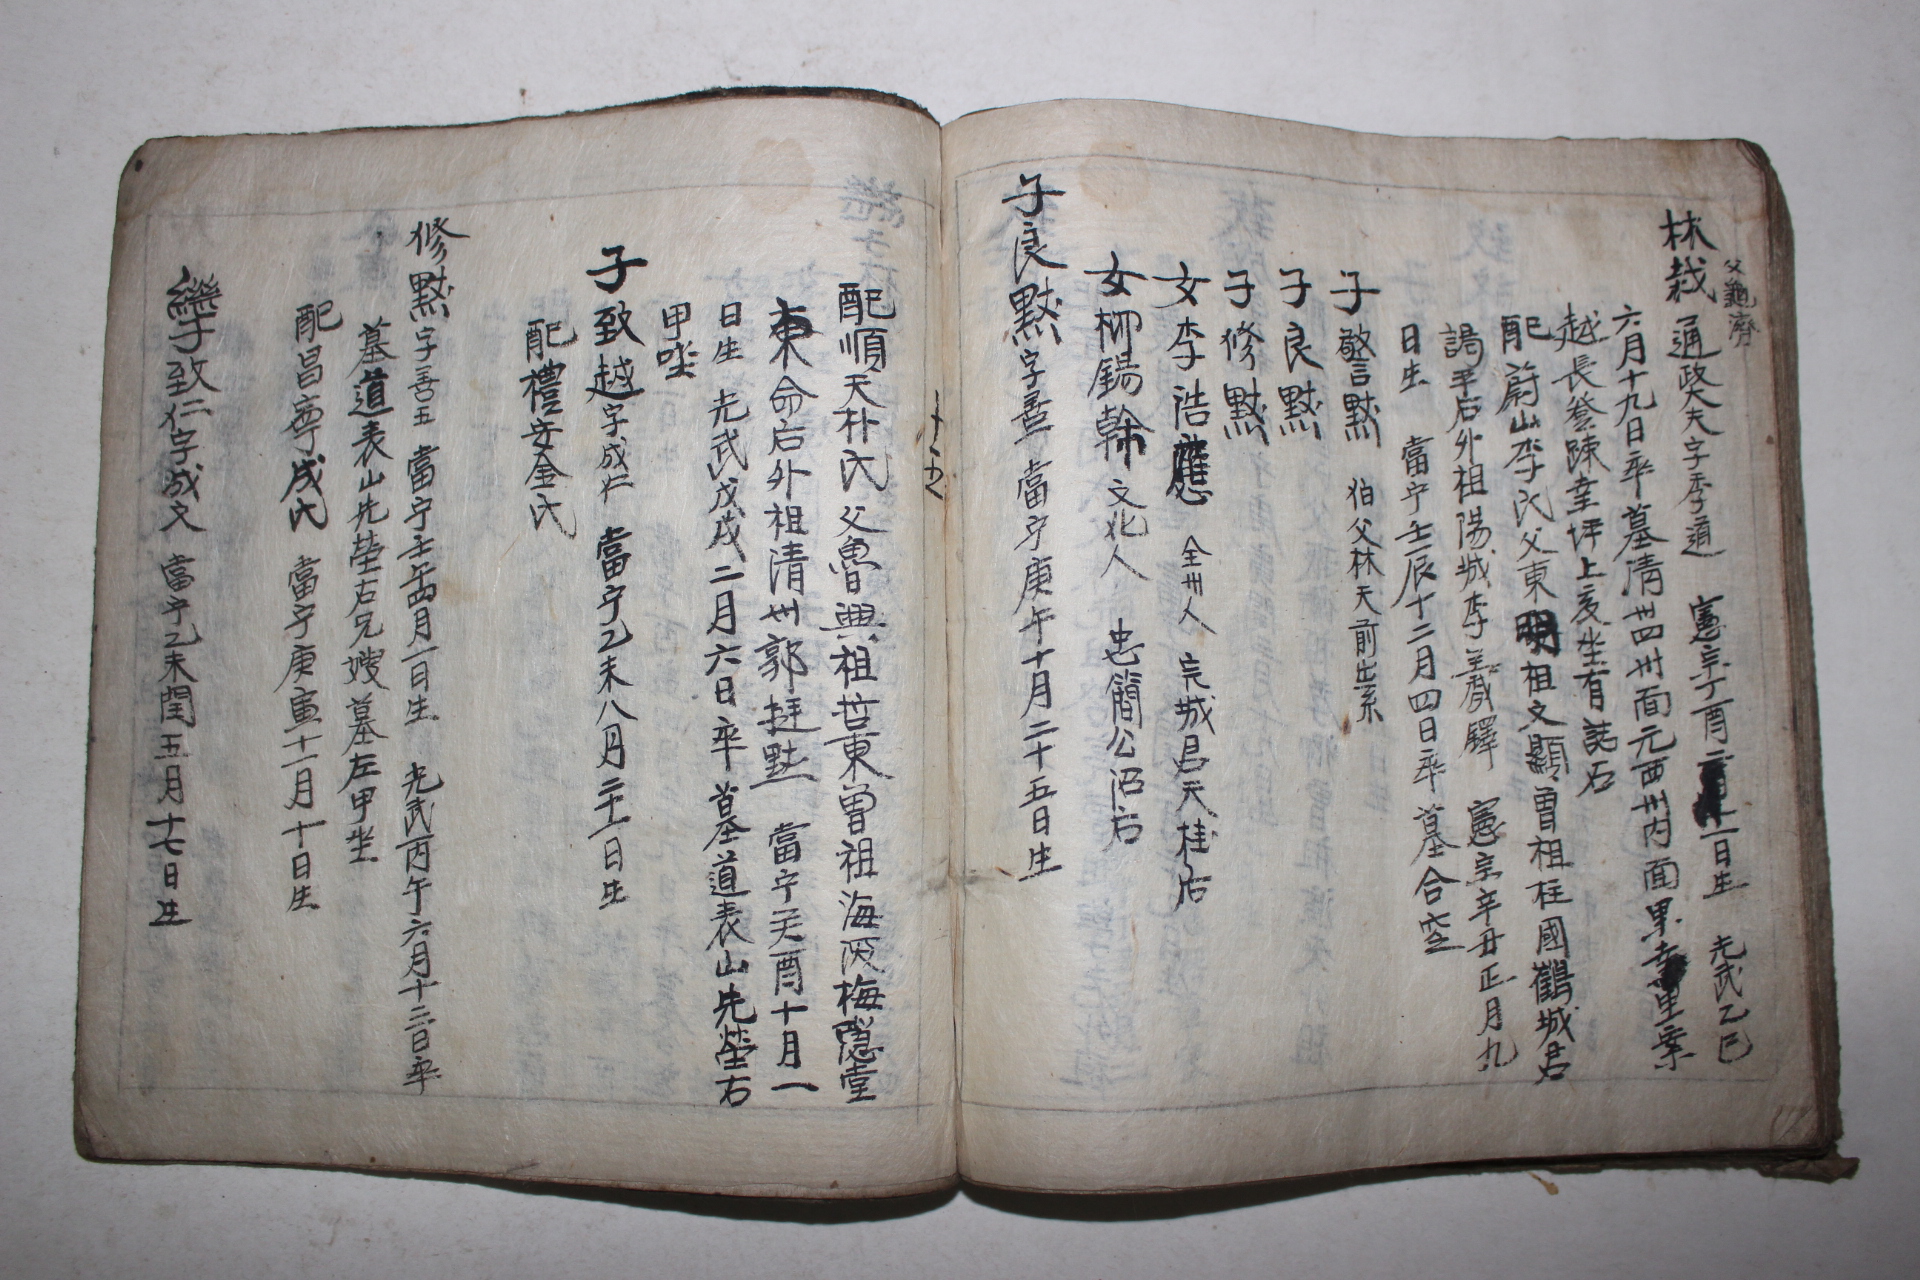 父龜濟
林栽 通政大夫字季通 憲宗丁酉 月 一日生 光武乙巳
六月十九日卒墓淸州四州面元西州內面 里案
越長登 坪上亥坐有誌石
配蔚山李氏父東明祖文顯曾祖柱國鶴城君
謁平后外祖陽城李義鐸 憲宗辛丑正月九
日生 當宁壬辰十二月四日卒 墓合窆
子警默 伯父林天前出系
子良默
子修默
女李浩應 全州人 完城君天桂后
女柳錫榦 文化人 忠簡公沼后
子良默字善 當宁庚午十月二十五日生
十五
配順天朴氏父魯興祖哲東曾祖海 梅隱堂
東命后外祖淸州郭挺 當宁癸酉十月一
日生 光武戊戌二月六日卒 墓道表山先塋右
甲坐
子致越字成仁 當宁乙未八月二十一日生
配禮安金氏
修默字善五 當宁壬午四月一日生 光武丙午六月十三日卒
墓道表山先塋右兄嫂墓左甲坐
配昌寧成氏 當宁庚寅十一月十日生
繼子致仁字成文 當宁乙未閏五月十七日生